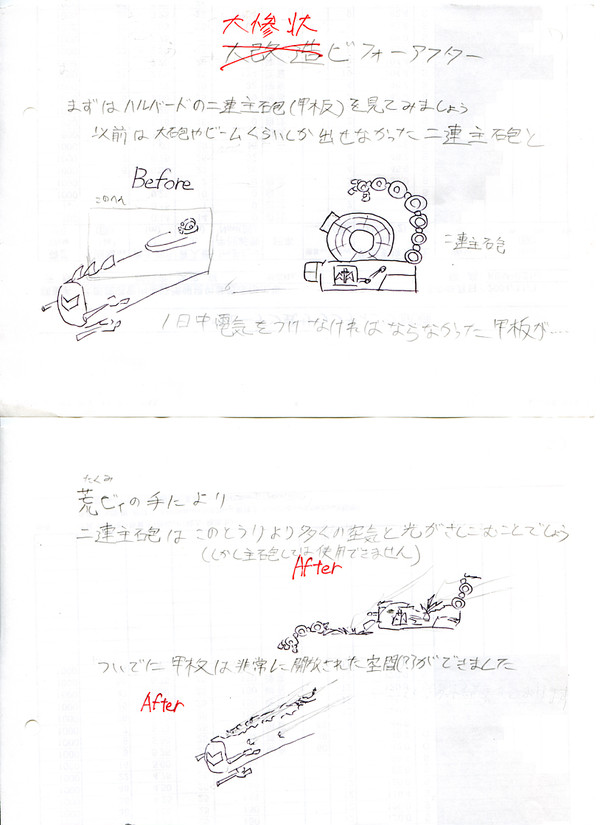 大惨状
大改造ビフォーアフター
まずはハルバードの二連主砲(甲板)を見てみましょう
以前は大砲やビームくらいしか出せなかった二連主砲と
Before
このへん
二連主砲
1日中電気をつけなければならなかった甲板が…
たくみ
荒ビィの手により
二連主砲はこのとうりより多くの空気と光がさしこむことでしょう
(しかし主砲としては使用できません)
After
ついでに甲板は非常に開放された空間(??)ができました
After